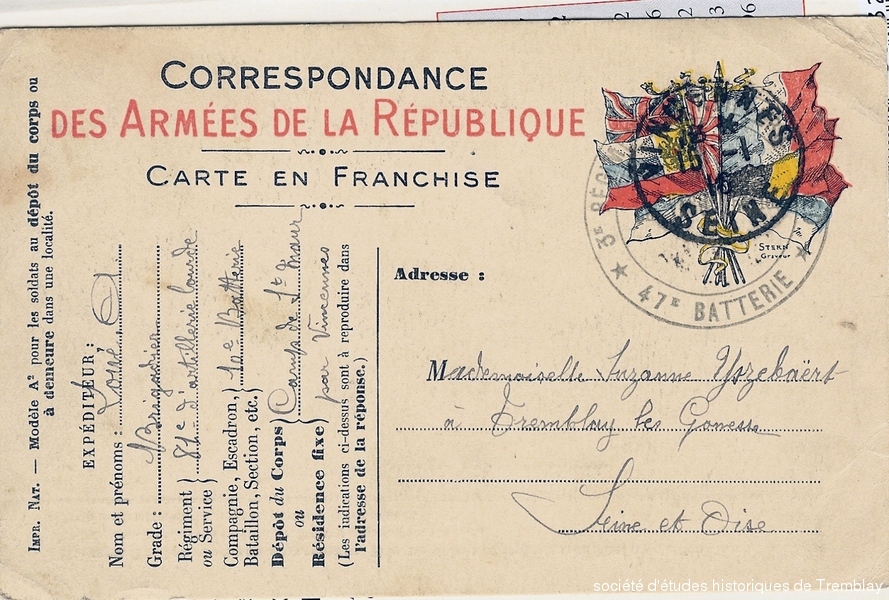 CORRESPONDANCE
DES ARMÉES DE LA RÉPUBLIQUE
CARTE EN FRANCHISE
IMPR. NAT. — Modèle A² pour les soldats au dépôt du corps ou
à demeure dans une localité.
EXPÉDITEUR :
Nom et prénoms :
Grade : Brigadier
Régiment
ou Service } 81e d'artillerie lourde
Compagnie, Escadron,
Bataillon, Section, etc. } 10e Batterie
Dépôt du Corps
ou
Résidence fixe } Camp de St Maur
par Vincennes
(Les indications ci-dessus sont à reproduire dans
l'adresse de la réponse.)
VINCENNES
SEINE
3E RÉG
★ 47E BATTERIE ★
STERN
Graveur
Adresse :
Mademoiselle Suzanne Yszebaërt
à Tremblay les Gonesse
Seine et Oise
société d'études historiques de Tremblay